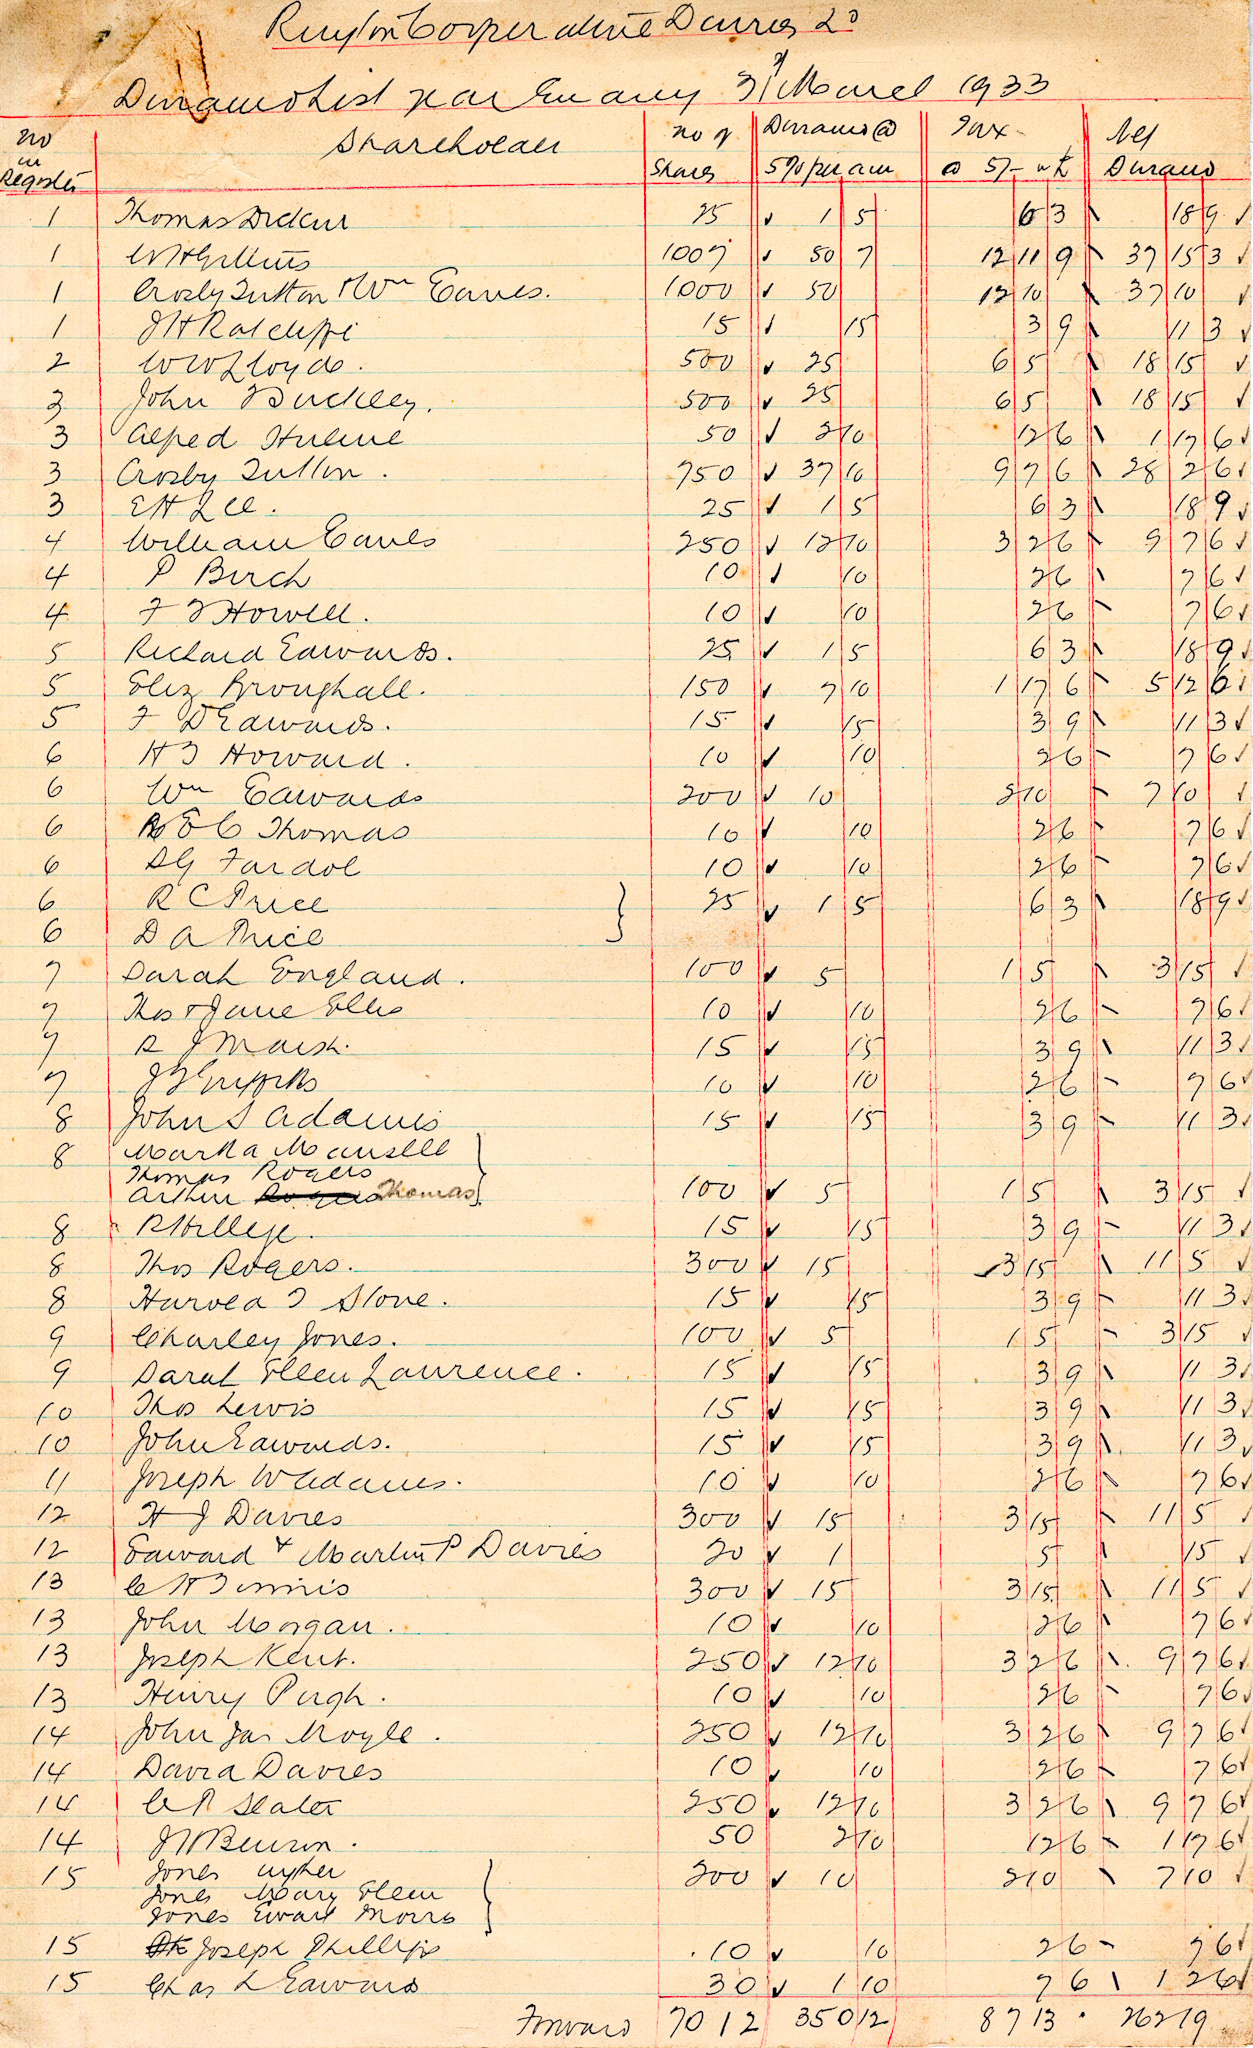 Ruyton Cooperative Dairies Ld
Dividend List year Ending 31st March 1933
No in Register Shareholder No of Shares Dividend @ 5% per ann Tax @ 5/- in £ Net Dividend
1 Thomas Dickin 25 1 5 6 3 18 9
1 W H Gittins 1007 50 7 12 11 9 37 15 3
1 Crosby Sutton & Wm Eaves. 1000 50 12 10 37 10
1 J H Ratcliffe 15 15 3 9 11 3
2 W W Lloyd. 500 25 6 5 18 15
3 John Buckley. 500 25 6 5 18 15
3 Alfred Hulme 50 2 10 12 6 1 17 6
3 Crosby Sutton. 750 37 10 9 7 6 28 2 6
3 E H Lee. 25 1 5 6 3 18 9
4 William Eaves 250 12 10 3 2 6 9 7 6
4 P Birch 10 10 2 6 7 6
4 F T Howell. 10 10 2 6 7 6
5 Richard Edwards. 25 1 5 6 3 18 9
5 Eliz Broughall. 150 7 10 1 17 6 5 12 6
5 F D Edwards. 15 15 3 9 11 3
6 H T Howard. 10 10 2 6 7 6
6 Wm Edwards 200 10 2 10 7 10
6 E C Thomas 10 10 2 6 7 6
6 A G Fardoe 10 10 2 6 7 6
6 R C Price } 25 1 5 6 3 18 9
6 D A Price
7 Sarah England. 100 5 1 5 3 15
7 Thos & Jane Ellis 10 10 2 6 7 6
7 R J Marsh. 15 15 3 9 11 3
7 J Griffiths 10 10 2 6 7 6
8 John S Adams 15 15 3 9 11 3
8 Martha Mansell }
Thomas Rogers
Arthur Rogers Thomas 100 5 1 5 3 15
8 15 15 3 9 11 3
8 Thos Rogers. 300 15 3 15 11 5
8 Harold T Stone. 15 15 3 9 11 3
9 Charley Jones. 100 5 1 5 3 15
9 Sarah Ellen Lawrence. 15 15 3 9 11 3
10 Thos Lewis 15 15 3 9 11 3
10 John Edwards. 15 15 3 9 11 3
11 Joseph W Adams. 10 10 2 6 7 6
12 H J Davies 300 15 3 15 11 5
12 Edward & Martin P Davies 20 1 5 15
13 300 15 3 15 11 5
13 John Morgan. 10 10 2 6 7 6
13 Joseph Kent. 250 12 10 3 2 6 9 7 6
13 Henry Pugh. 10 10 2 6 7 6
14 John Jas Moyle. 250 12 10 3 2 6 9 7 6
14 David Davies 10 10 2 6 7 6
14 Slater 250 12 10 3 2 6 9 7 6
14 50 2 10 12 6 1 17 6
15 Jones } 200 10 2 10 7 10
Jones Mary Ellen
Jones Ewart Morris
15 Joseph Phillips 10 10 2 6 7 6
15 Chas L Edwards 30 1 10 7 6 1 2 6
Forward 7012 350 12 87 13 262 19